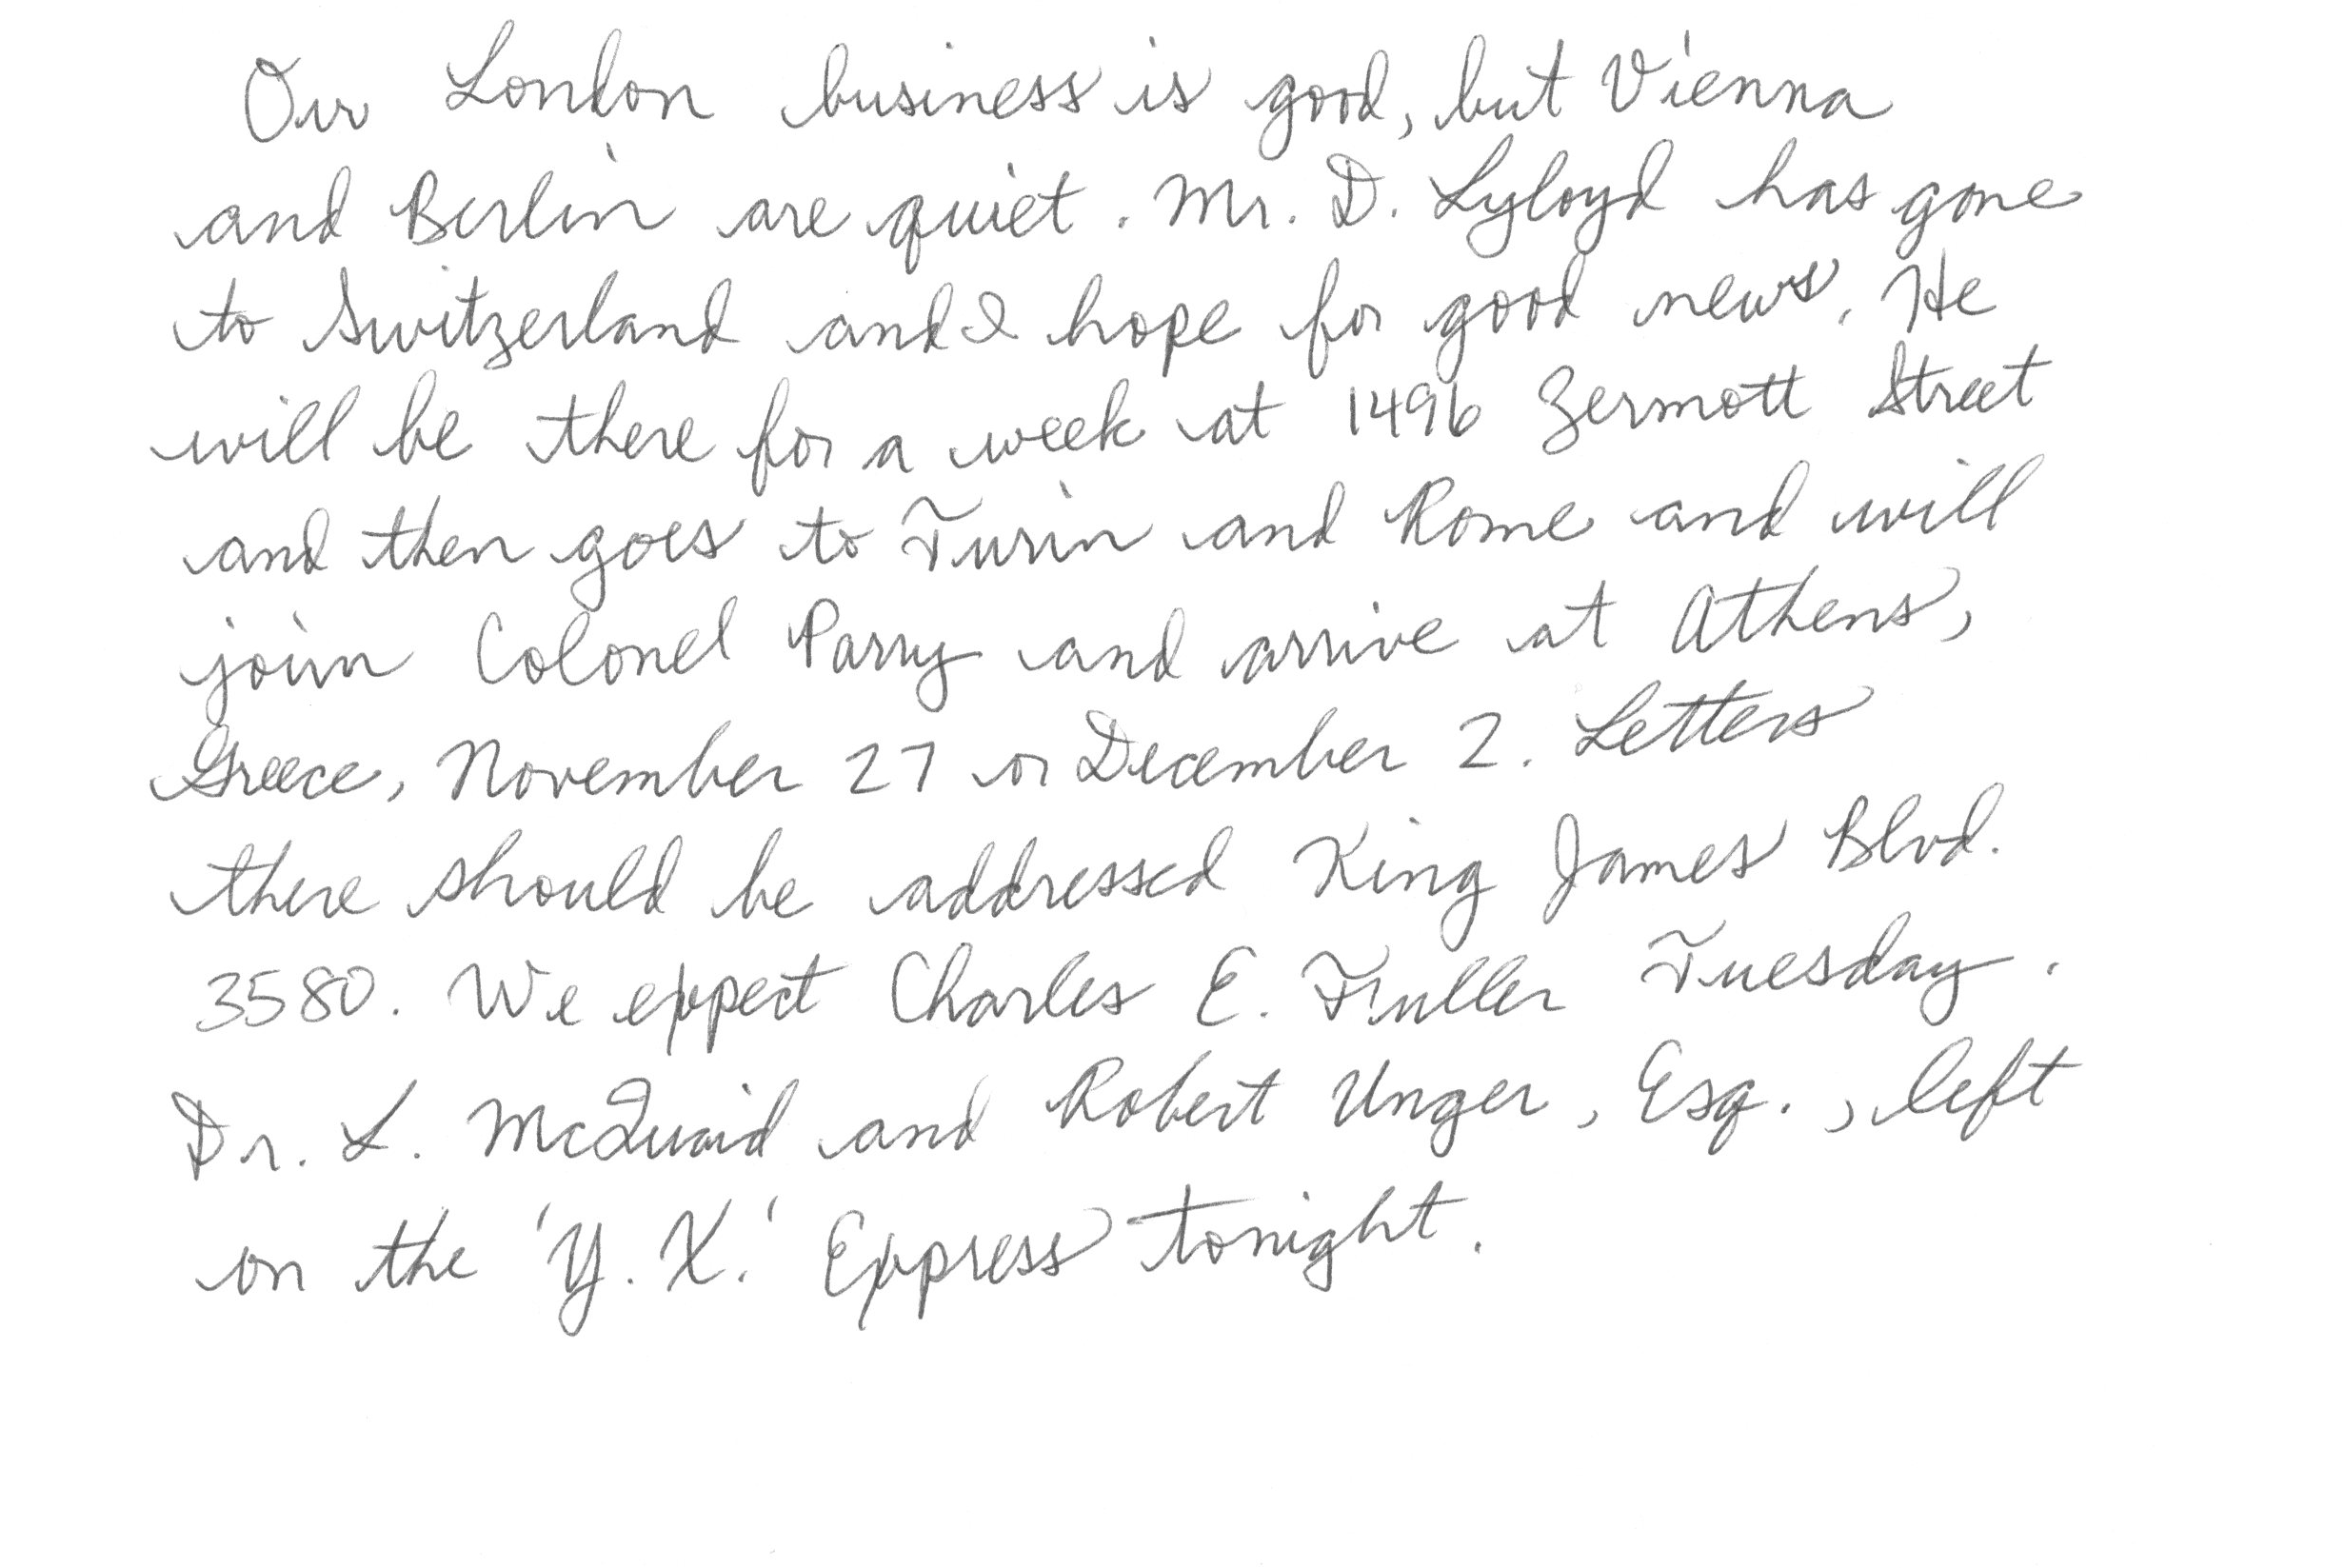 Our London business is good, but Vienna
and Berlin are quiet. Mr. D. Lyloyd has gone
to Switzerland and I hope for good news. He
will be there for a week at 1496 Zermott Street
and then goes to Turin and Rome and will
join Colonel Parry and arrive at Athens,
Greece, November 27 or December 2. Letters
there should be addressed King James Blvd.
3580. We expect Charles E. Fuller Tuesday.
Dr. L. McQuaid and Robert Unger, Esq., left
on the 'Y. X.' Express tonight.